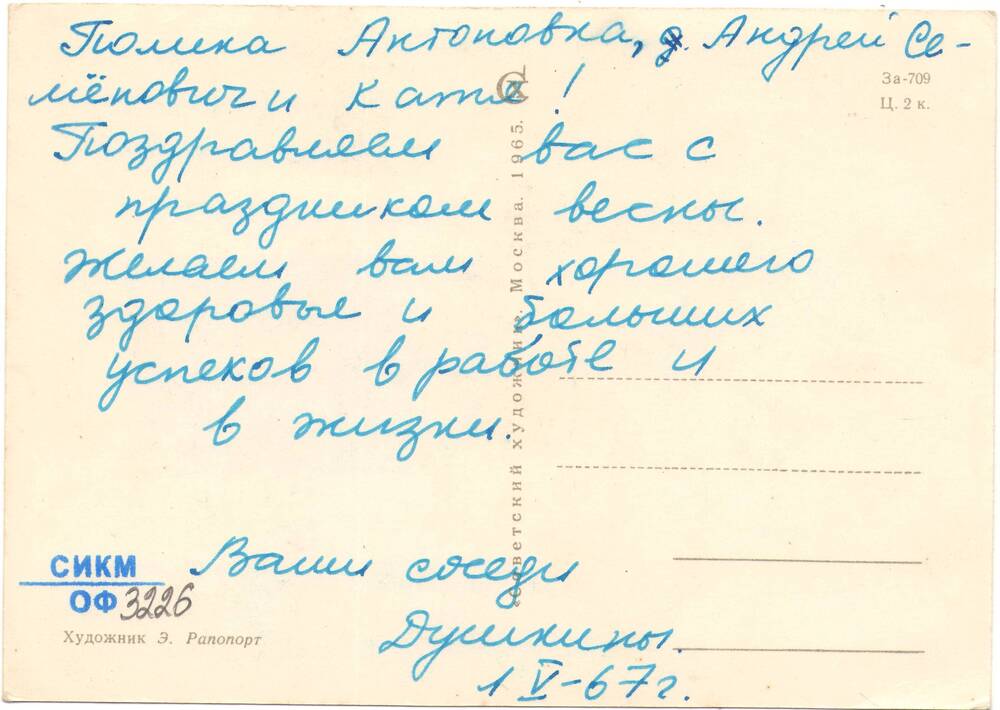 Полина Антоновка, д. Андрей Се-
мёнович и Катя!
Поздравляем вас с
праздником весны.
Желаем вам хорошего
здоровье и больших
успеков в работе и
в жизни.
Ваши соседи
Душкины.
1 V-67г.
За-709
Ц. 2 к.
«Советский художник». Москва. 1965.
СИКМ
ОФ 3226
Художник Э. Рапопорт